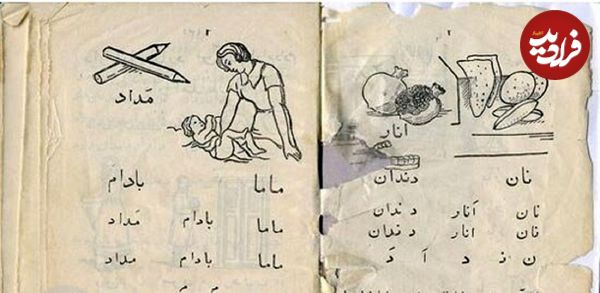 فرادید
انار
نان دندان
نان اَنار دندان
نان انار دندان
ن نـ د اَ دَ
مَداد
ماما بادام
ماما بادام مَداد
ماما بادام مداد